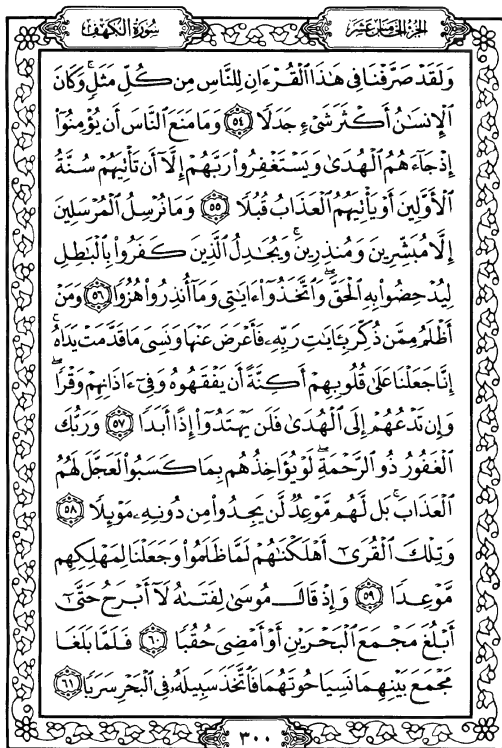 سُورَةُ الكَهْفِ
الجُزْءُ الخَامِسَ عَشَرَ
وَلَقَدْ صَرَّفْنَا فِي هَٰذَا الْقُرْءَانِ لِلنَّاسِ مِن كُلِّ مَثَلٍ ۚ وَكَانَ
الْإِنسَٰنُ أَكْثَرَ شَىْءٍ جَدَلًا ٥٤ وَمَا مَنَعَ النَّاسَ أَن يُؤْمِنُوٓا۟
إِذْ جَآءَهُمُ الْهُدَىٰ وَيَسْتَغْفِرُوا۟ رَبَّهُمْ إِلَّآ أَن تَأْتِيَهُمْ سُنَّةُ
الْأَوَّلِينَ أَوْ يَأْتِيَهُمُ الْعَذَابُ قُبُلًا ٥٥ وَمَا نُرْسِلُ الْمُرْسَلِينَ
إِلَّا مُبَشِّرِينَ وَمُنذِرِينَ ۚ وَيُجَٰدِلُ الَّذِينَ كَفَرُوا۟ بِالْبَٰطِلِ
لِيُدْحِضُوا۟ بِهِ الْحَقَّ ۖ وَاتَّخَذُوٓا۟ ءَايَٰتِى وَمَآ أُنذِرُوا۟ هُزُوًا ٥٦ وَمَنْ
أَظْلَمُ مِمَّن ذُكِّرَ بِـَٔايَٰتِ رَبِّهِۦ فَأَعْرَضَ عَنْهَا وَنَسِىَ مَا قَدَّمَتْ يَدَاهُ ۚ
إِنَّا جَعَلْنَا عَلَىٰ قُلُوبِهِمْ أَكِنَّةً أَن يَفْقَهُوهُ وَفِىٓ ءَاذَانِهِمْ وَقْرًا ۖ
وَإِن تَدْعُهُمْ إِلَى الْهُدَىٰ فَلَن يَهْتَدُوٓا۟ إِذًا أَبَدًا ٥٧ وَرَبُّكَ
الْغَفُورُ ذُو الرَّحْمَةِ ۖ لَوْ يُؤَاخِذُهُم بِمَا كَسَبُوا۟ لَعَجَّلَ لَهُمُ
الْعَذَابَ ۚ بَل لَّهُم مَّوْعِدٌ لَّن يَجِدُوا۟ مِن دُونِهِۦ مَوْئِلًا ٥٨
وَتِلْكَ الْقُرَىٰٓ أَهْلَكْنَٰهُمْ لَمَّا ظَلَمُوا۟ وَجَعَلْنَا لِمَهْلِكِهِم
مَّوْعِدًا ٥٩ وَإِذْ قَالَ مُوسَىٰ لِفَتَىٰهُ لَآ أَبْرَحُ حَتَّىٰٓ
أَبْلُغَ مَجْمَعَ الْبَحْرَيْنِ أَوْ أَمْضِىَ حُقُبًا ٦٠ فَلَمَّا بَلَغَا
مَجْمَعَ بَيْنِهِمَا نَسِيَا حُوتَهُمَا فَاتَّخَذَ سَبِيلَهُۥ فِى الْبَحْرِ سَرَبًا ٦١
٣٠٠